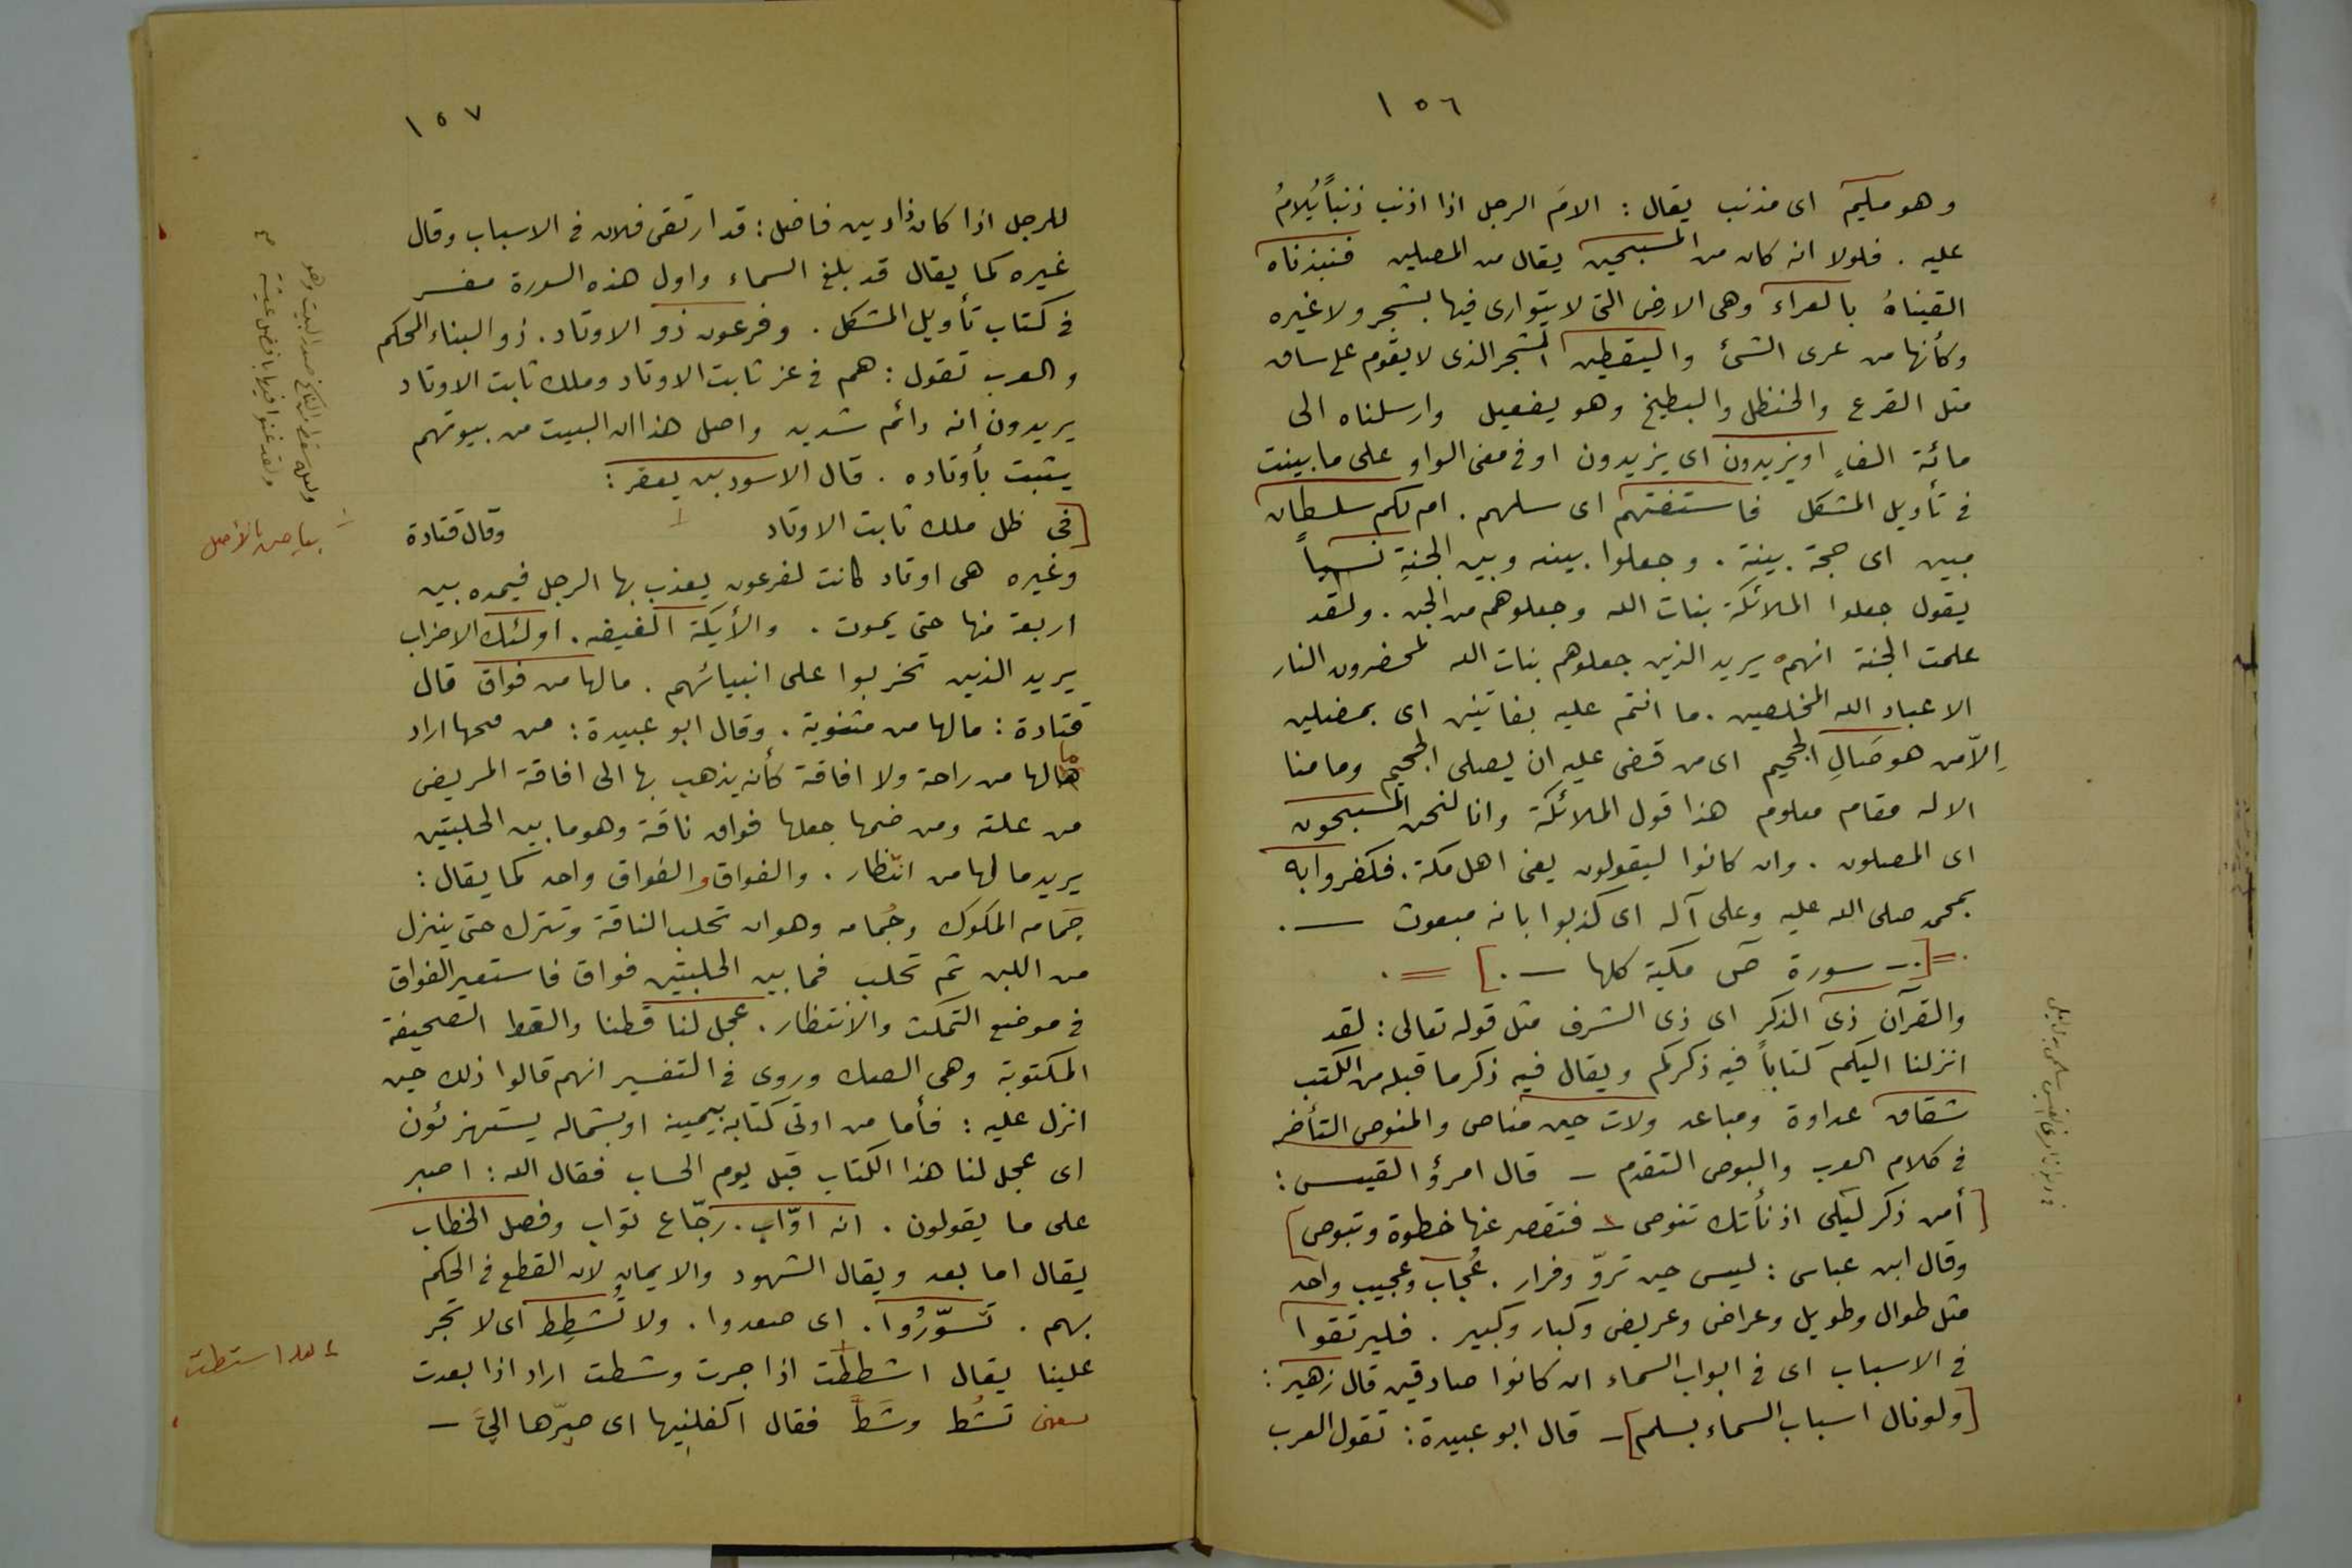 ١٥٦
وهو مليم اى مذنب يقال : الامَ الرجل اذا اذنب ذنباً يُلامُ
عليه . فلولا انه كان من المسبحين يقال من المصلين فنبذناه
القيناهُ بالعراء وهى الارض التى لا يتوارى فيها بشجر ولا غيره
وكأنها من عرى الشئ واليقطين الشجر الذى لا يقوم على ساق
مثل القرع والحنظل والبطيخ وهو يفعيل وارسلناه الى
مائة الفٍ او يزيدون اى يزيدون او فى معنى الواو على ما بينت
فى تأويل المشكل فاستفتهم اى سلهم . ام لكم سلطان
مبين اى حجة بينة . وجعلوا بينه وبين الجنةِ نسباً
يقول جعلوا الملائكة بنات الله وجعلوهم من الجن . ولقد
علمت الجنة انهم يريد الذين جعلوهم بنات الله لمحضرون النار
الا عباد الله المخلصين . ما انتم عليه بفاتنين اى بمضلين
اِلاّ من هو صَالِ الجحيم اى من قضى عليه ان يصلى الجحيم وما منا
الا له مقام معلوم هذا قول الملائكة وانا لنحن المسبحون
اى المصلون . وان كانوا ليقولون يعنى اهل مكة . فكفروا به
بمحمد صلى الله عليه وعلى آله اى كذبوا بانه مبعوث ـ .
. = [ . ـ سورة صٓ مكية كلها ـ . ] = .
والقرآن ذى الذكر اى ذى الشرف مثل قوله تعالى : لقد
انزلنا اليكم كتاباً فيه ذكركم ويقال فيه ذكر ما قبله من الكتب
شقاق عداوة ومباعد ولات حين مناص والمنوص التأخر
فى كلام العرب والبوص التقدم ـ قال امرؤ القيس :
[ أمن ذكر ليلى اذ نأتك تنوص ـ فتقصر عنها خطوة وتبوص ]
وقال ابن عباس : ليس حين تروّ وفرار . عُجاب وعجيب واحد
مثل طوال وطويل وعراض وعريض وكبار وكبير . فليرتقوا
فى الاسباب اى فى ابواب السماء ان كانوا صادقين قال زهير :
[ ولو نال اسباب السماء بسلم ] ـ قال ابو عبيدة : تقول العرب
١٥٧
للرجل اذا كان ذا دين فاضل : قد ارتقى فلان فى الاسباب وقال
غيره كما يقال قد بلغ السماء واول هذه السورة مفسر
فى كتاب تأويل المشكل . وفرعون ذو الاوتاد . ذو البناء المحكم
والعرب تقول : هم فى عز ثابت الاوتاد وملك ثابت الاوتاد
يريدون انه دائم شديد واصل هذا ان البيت من بيوتهم
يثبت بأوتاده . قال الاسود بن يعفر :
[ فى ظل ملك ثابت الاوتاد ١ وقال قتادة
وغيره هى اوتاد كانت لفرعون يعذب بها الرجل فيمده بين
اربعة منها حتى يموت . والأيكة الغيضه . اولئك الاحزاب
يريد الذين تحزبوا على انبيائهم . مالها من فواق قال
قتادة : مالها من مثنوية . وقال ابو عبيدة : من فتحها اراد
ما لها من راحة ولا افاقة كأنه يذهب بها الى افاقة المريض
من علته ومن ضمها جعلها فواق ناقة وهو ما بين الحلبتين
يريد مالها من انتظار . والفواق والفواق واحد كما يقال :
جَمام المكوك وجُمامه وهو ان تحلب الناقة وتترك حتى ينزل
من اللبن ثم تحلب فما بين الحلبتين فواق فاستعير الفواق
فى موضع التمكث والانتظار . عجل لنا قطنا والقط الصحيفة
المكتوبة وهى الصك وروى فى التفسير انهم قالوا ذلك حين
انزل عليه : فأما من اوتى كتابه بيمينه او بشماله يستهزئون
اى عجل لنا هذا الكتاب قبل يوم الحساب فقال الله : اصبر
على ما يقولون . انه اوّاب . رجّاع تواب وفصل الخطاب
يقال اما بعد ويقال الشهود والايمان لان القطع فى الحكم
بهم . تسوّرُوا . اى صعدوا . ولا تُشطِط اى لا تجر
علينا يقال اشططت اذا جرت وشطت اراد اذا بعدت
يعنى تشُط وشَطَّ فقال اكفلنيها اى صيّرها الىَّ ـ
١ بياض بالأصل
٢ لعله اشتطت